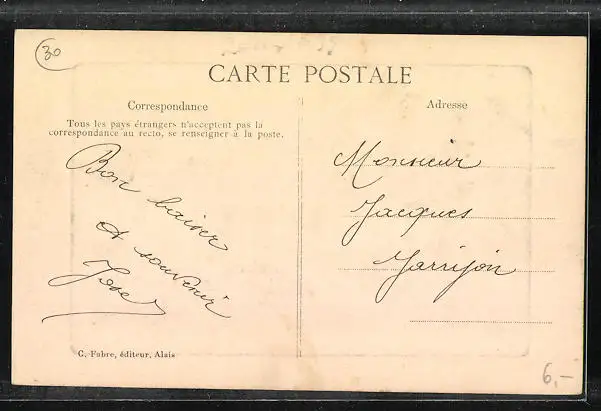 30
CARTE POSTALE
Correspondance
Tous les pays étrangers n'acceptent pas la
correspondance au recto, se renseigner à la poste.
Bon baiser
et souvenir
Adresse
Monsieur
Jacques
Jarrijon
C. Fabre, éditeur, Alais
6,-